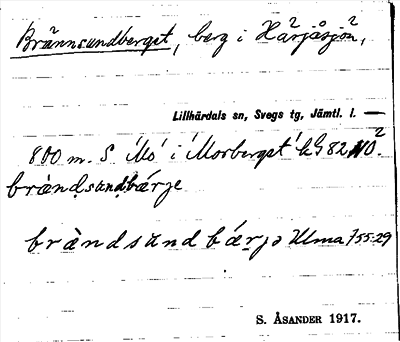 Brännsundberget, berg i Härjåsjön,
Lillhärdals sn, Svegs tg, Jämtl. l. —
800 m. S 'Mo' i 'Morberget' kG 82
bràndsundbárje
bràndsundbárjə Ulma 755:29
S. ÅSANDER 1917.